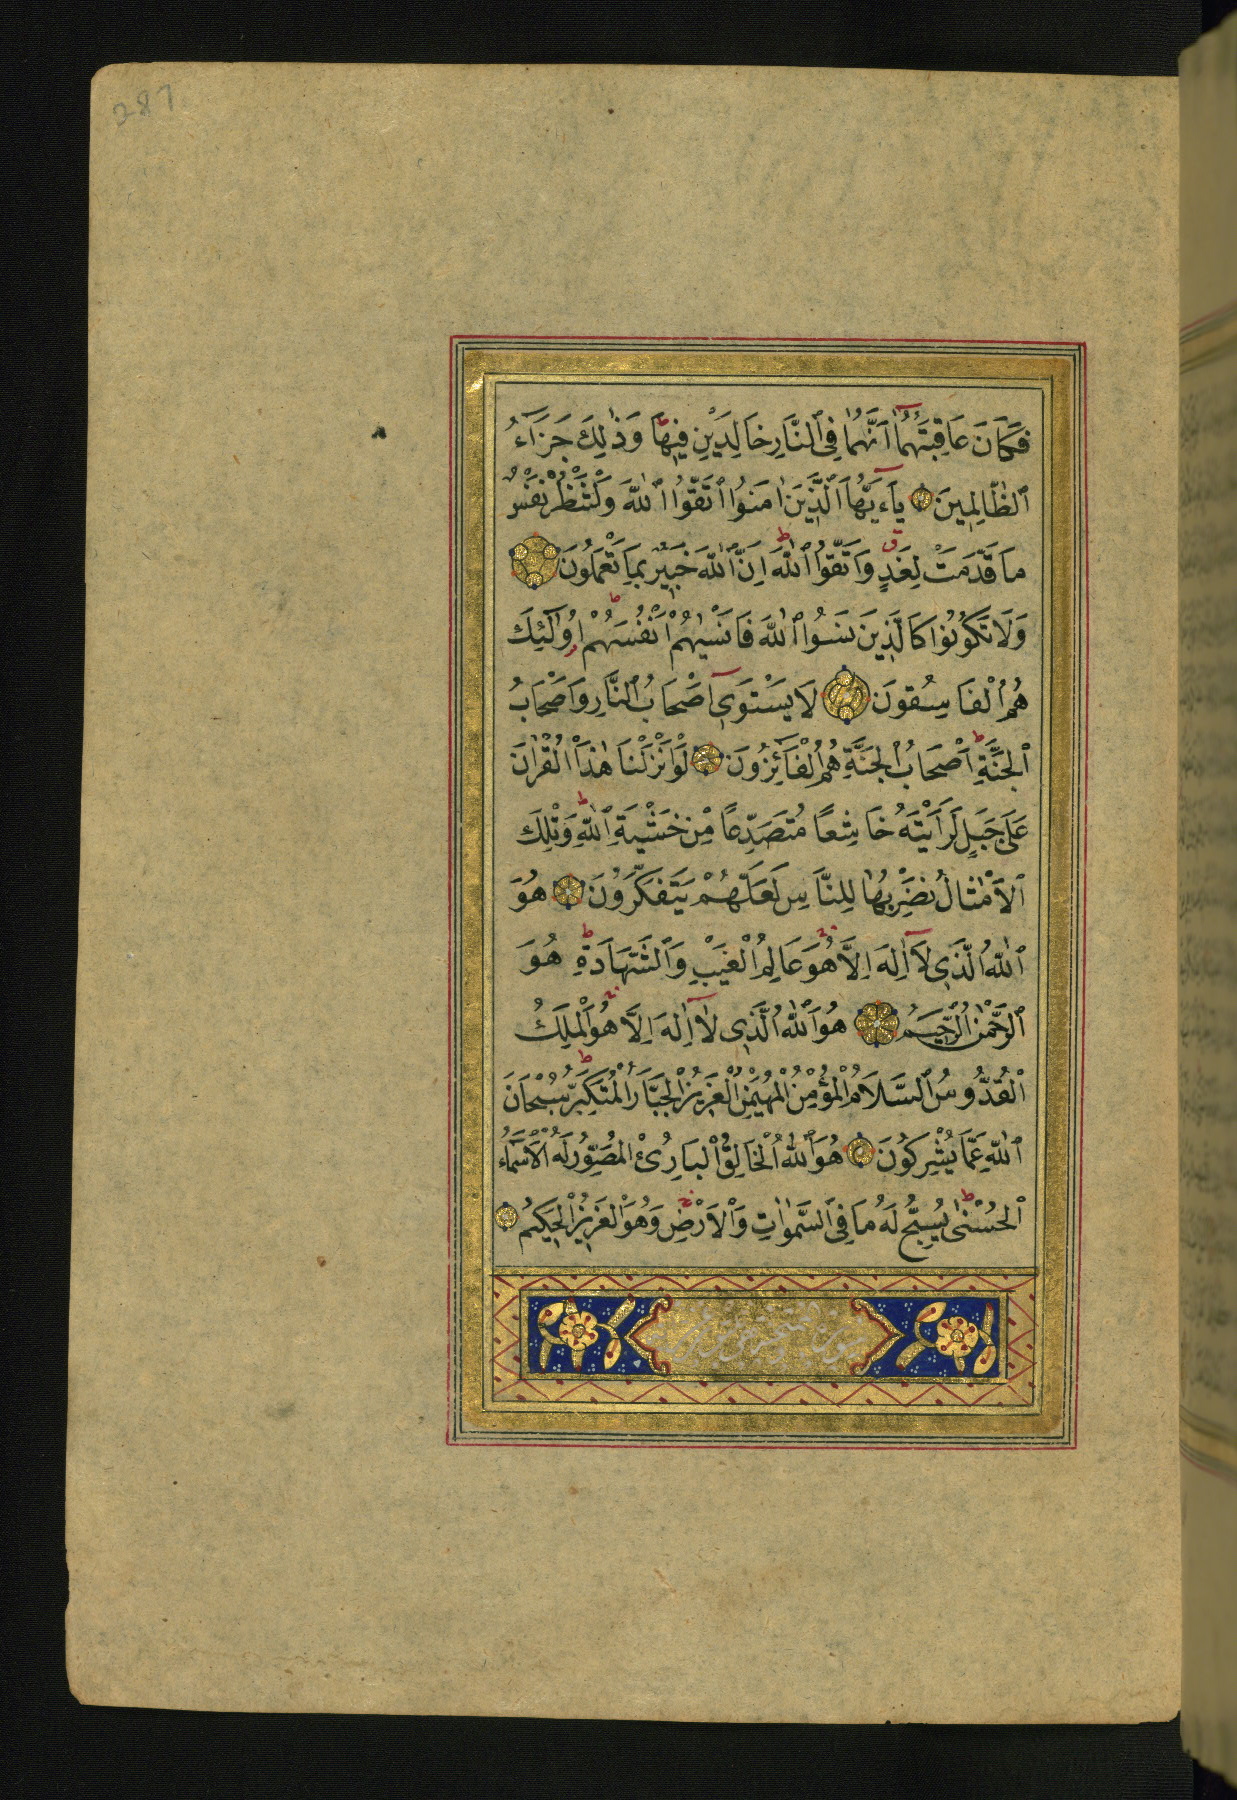 287
فَكَانَ عَاقِبَتَهُمَا اَنَّهُمَا فِى ٱلنَّارِ خَالِدَيْنِ فِيهَا وَذٰلِكَ جَزَاءُ
ٱلظَّالِمِينَ يَآءَيُّهَا ٱلَّذِينَ اٰمَنُوا ٱتَّقُوا ٱللّٰهَ وَلْتَنْظُرْ نَفْسٌ
مَا قَدَّمَتْ لِغَدٍ وَٱتَّقُوا ٱللّٰهَ اِنَّ ٱللّٰهَ خَبِيرٌ بِمَا تَعْمَلُونَ
وَلَا تَكُونُوا كَالَّذِينَ نَسُوا ٱللّٰهَ فَاَنْسٰيهُمْ اَنْفُسَهُمْ اُولٰٓئِكَ
هُمُ ٱلْفَاسِقُونَ لَا يَسْتَوِىٓ اَصْحَابُ ٱلنَّارِ وَاَصْحَابُ
ٱلْجَنَّةِ اَصْحَابُ ٱلْجَنَّةِ هُمُ ٱلْفَآئِزُونَ لَوْ اَنْزَلْنَا هٰذَا ٱلْقُرْاٰنَ
عَلَى جَبَلٍ لَرَاَيْتَهُ خَاشِعًا مُتَصَدِّعًا مِنْ خَشْيَةِ ٱللّٰهِ وَتِلْكَ
ٱلْاَمْثَالُ نَضْرِبُهَا لِلنَّاسِ لَعَلَّهُمْ يَتَفَكَّرُونَ هُوَ
ٱللّٰهُ ٱلَّذِى لَآ اِلٰهَ اِلَّا هُوَ عَالِمُ ٱلْغَيْبِ وَٱلشَّهَادَةِ هُوَ
ٱلرَّحْمٰنُ ٱلرَّحِيمُ هُوَ ٱللّٰهُ ٱلَّذِى لَآ اِلٰهَ اِلَّا هُوَ ٱلْمَلِكُ
ٱلْقُدُّوسُ ٱلسَّلَامُ ٱلْمُؤْمِنُ ٱلْمُهَيْمِنُ ٱلْعَزِيزُ ٱلْجَبَّارُ ٱلْمُتَكَبِّرُ سُبْحَانَ
ٱللّٰهِ عَمَّا يُشْرِكُونَ هُوَ ٱللّٰهُ ٱلْخَالِقُ ٱلْبَارِئُ ٱلْمُصَوِّرُ لَهُ ٱلْاَسْمَاءُ
ٱلْحُسْنٰى يُسَبِّحُ لَهُ مَا فِى ٱلسَّمٰوَاتِ وَٱلْاَرْضِ وَهُوَ ٱلْعَزِيزُ ٱلْحَكِيمُ